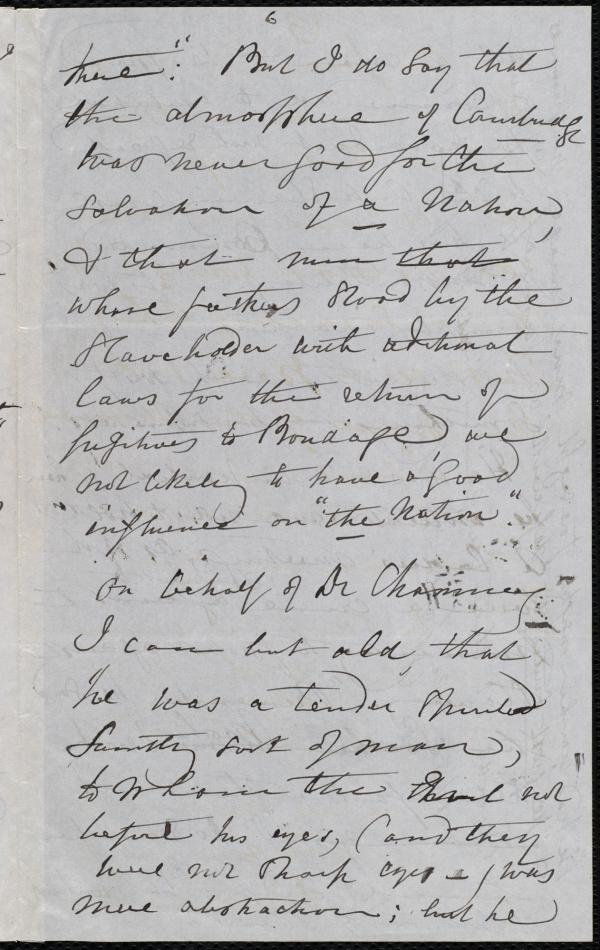 6
there": But I do say that
the atmosphere of Cambridge
was never good for the
salvation of a Nation,
& that men that
whose fathers stood by the
Slaveholder with additional
laws for the return of
fugitives to Bondage, are
not likely to have a good
influence on "the Nation".
On behalf of Dr Channing
I can but add, that
he was a tender spirited
Saintly sort of man,
to whom the evil not
before his eyes, (and they
were not sharp eyes – ) was
mere abstraction; but he